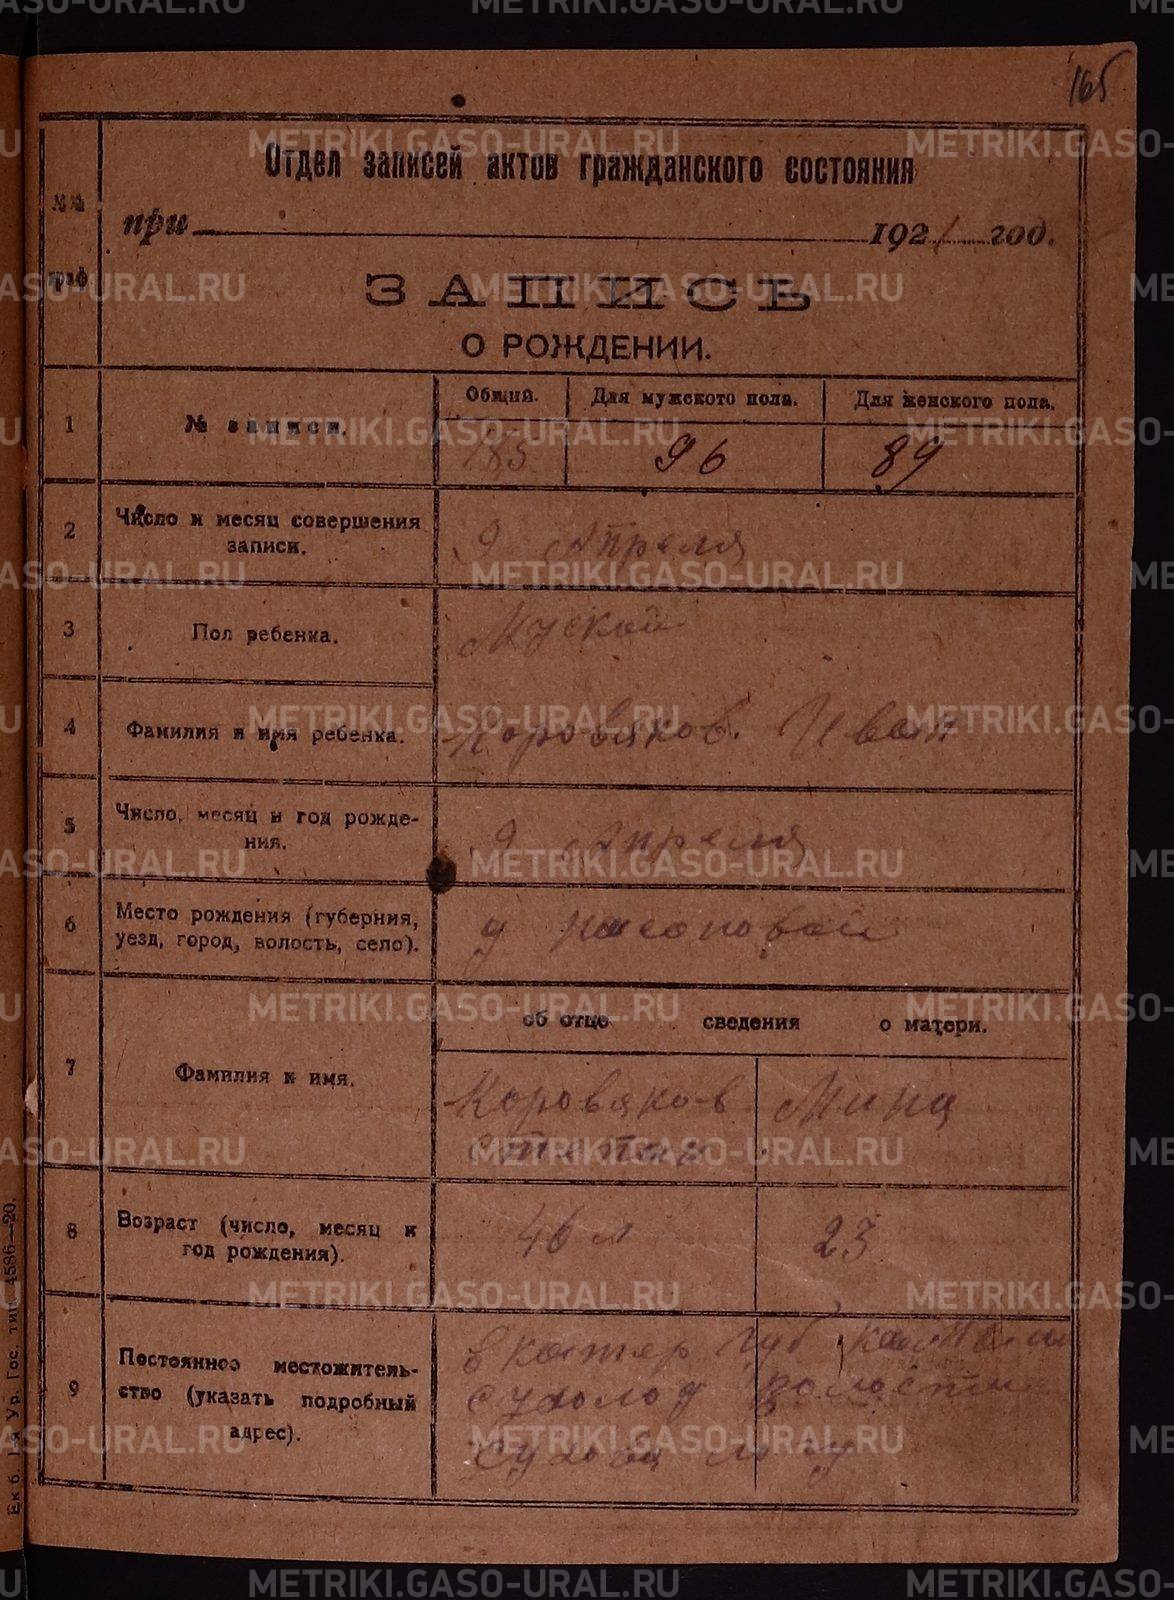 165
Отдел записей актов гражданского состояния
№№ граф
при 1921 год.
ЗАПИСЬ
О РОЖДЕНИИ.
1 № записи. Общий. Для мужского пола. Для женского пола.
185 96 89
2 Число и месяц совершения записи. 9 Апреля
3 Пол ребенка. Муской
4 Фамилия и имя ребенка. Коровяков Иван
5 Число, месяц и год рождения. 9 Апреля
6 Место рождения (губерния, уезд, город, волость, село). д
об отце сведения о матери.
7 Фамилия и имя. Коровяков Степан Мина
8 Возраст (число, месяц и год рождения). 46 л 23
9 Постоянное местожительство (указать подробный адрес). губ
сухолод волости
Ек б. 1-я Ур. Гос. тип. 4586—20.
METRIKI.GASO-URAL.RU